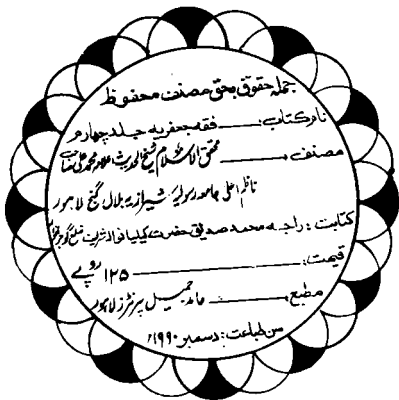 جملہ حقوق بحق مصنف محفوظ
نام کتاب: ــــ فقہ جعفریہ جلد چہارم
مصنف: ــــ محقق الاسلام شیخ الحدیث علامہ محمد علی صاحب
ناظم اعلیٰ جامعہ رسولیہ شیرازیہ بلال گنج لاہور
کتابت: راجہ محمد صدیق حضرت کیلیانوالہ شریف ضلع گوجرانوالہ
قیمت: ــــ ۱۲۵ روپے
مطبع: ــــ حامد جمیل پرنٹرز لاہور
سن طباعت: دسمبر ۱۹۹۰ء